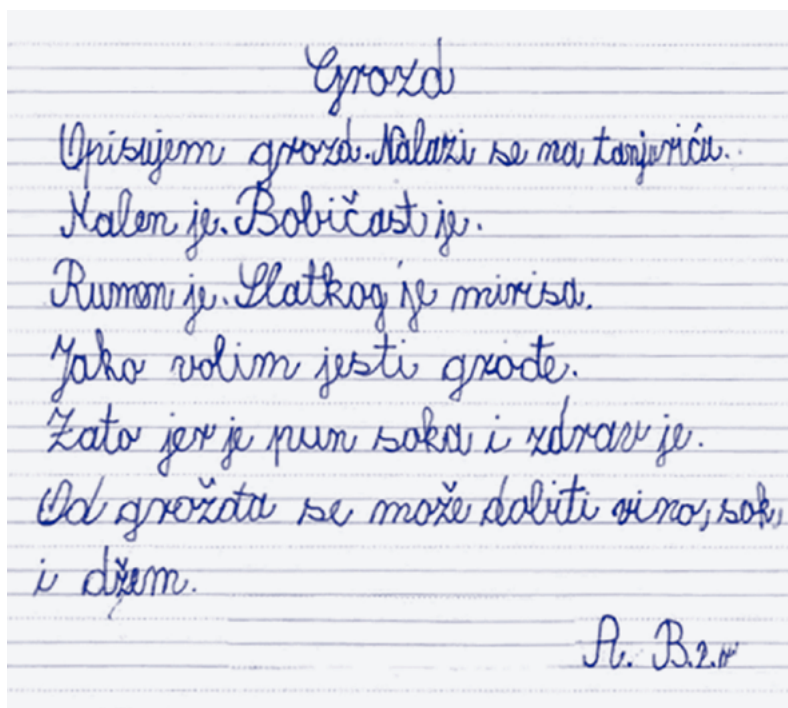 Grozd
Opisujem grozd. Nalazi se na tanjuriću.
Malen je. Bobičast je.
Rumen je. Slatkog je mirisa.
Jako volim jesti grođe.
Zato jer je pun soka i zdrav je.
Od grožđa se može dobiti vino, sok,
i džem.
A. B. 2. r